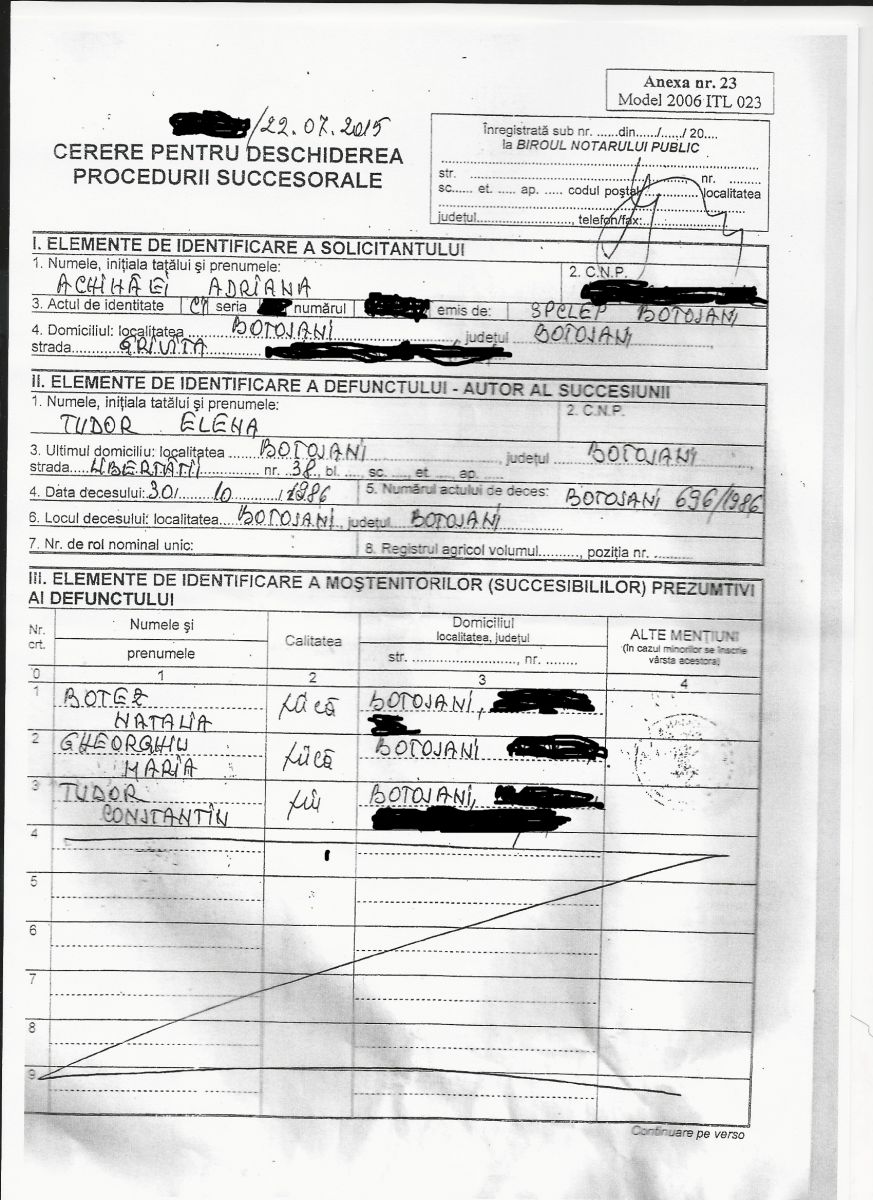 Anexa nr. 23
Model 2006 ITL 023
/22.07.2015
CERERE PENTRU DESCHIDEREA
PROCEDURII SUCCESORALE
Înregistrată sub nr. ......din....../....../ 20....
la BIROUL NOTARULUI PUBLIC
str. ........ nr. ........
sc...... et. ..... ap. ..... codul poştal ........ localitatea
judeţul........................, telefon/fax:........................
I. ELEMENTE DE IDENTIFICARE A SOLICITANTULUI
1. Numele, iniţiala tatălui şi prenumele: 2. C.N.P.
ACHIHĂEI ADRIANA
3. Actul de identitate CI seria numărul emis de: SPCLEP BOTOȘANI
4. Domiciliul: localitatea BOTOȘANI judeţul BOTOȘANI
strada GRIVIȚA
II. ELEMENTE DE IDENTIFICARE A DEFUNCTULUI - AUTOR AL SUCCESIUNII
1. Numele, iniţiala tatălui şi prenumele: 2. C.N.P.
TUDOR ELENA
3. Ultimul domiciliu: localitatea BOTOȘANI, judeţul BOTOȘANI
strada LIBERTĂȚII nr. 38 bl. ... sc. ...., et ...., ap. .....
4. Data decesului: 30/ 10 / 1986 5. Numărul actului de deces: BOTOȘANI 696/1986
6. Locul decesului: localitatea BOTOȘANI, judeţul BOTOȘANI
7. Nr. de rol nominal unic: 8. Registrul agricol volumul.........., poziţia nr. ..........
III. ELEMENTE DE IDENTIFICARE A MOŞTENITORILOR (SUCCESIBILILOR) PREZUMTIVI
AI DEFUNCTULUI
Nr. crt. Numele şi prenumele Calitatea Domiciliul localitatea, judeţul str. .........................., nr. ........ ALTE MENŢIUNI (În cazul minorilor se înscrie vârsta acestora)
0 1 2 3 4
1 BOTEZ NATALIA fiică BOTOȘANI,
2 GHEORGHIU MARIA fiică BOTOȘANI
3 TUDOR CONSTANTIN fiu BOTOȘANI,
4
5
6
7
8
9
Continuare pe verso